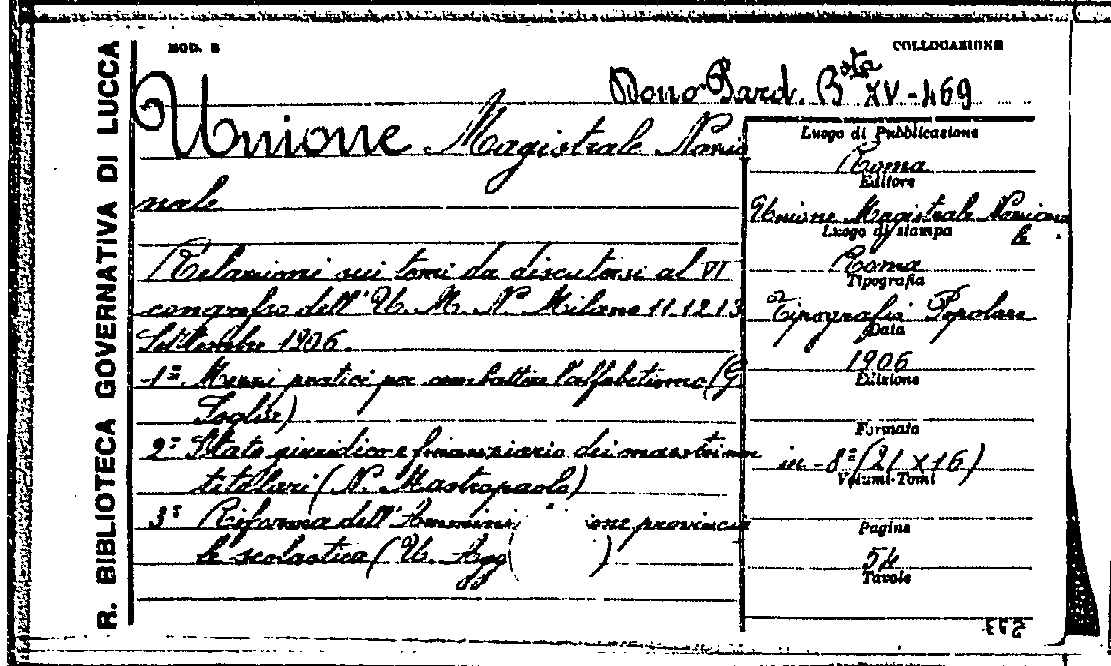 R. BIBLIOTECA GOVERNATIVA DI LUCCA
MOD. B
COLLOCAZIONE
Dono Bard. Bsta XV-469
Unione Magistrale Nazio
nale
Relazioni sui temi da discutersi al VI
congresso dell' U. M. N. Milano 11.12.13
Settembre 1906.
1º Mezzi pratici per combattere l'alfabetismo (G.
Soglia)
2º Stato giuridico e finanziario dei maestri non
titolari (N. Mastropaolo)
3º Riforma dell'Ammini one provincia
le scolastica (U. Agg )
Luogo di Pubblicazione
Roma
Editore
Unione Magistrale Naziona
le
Luogo di stampa
Roma
Tipografia
Tipografia Popolare
Data
1906
Edizione
Formato
in-8º (21 x 16)
Volumi-Tomi
Pagine
54
Tavole